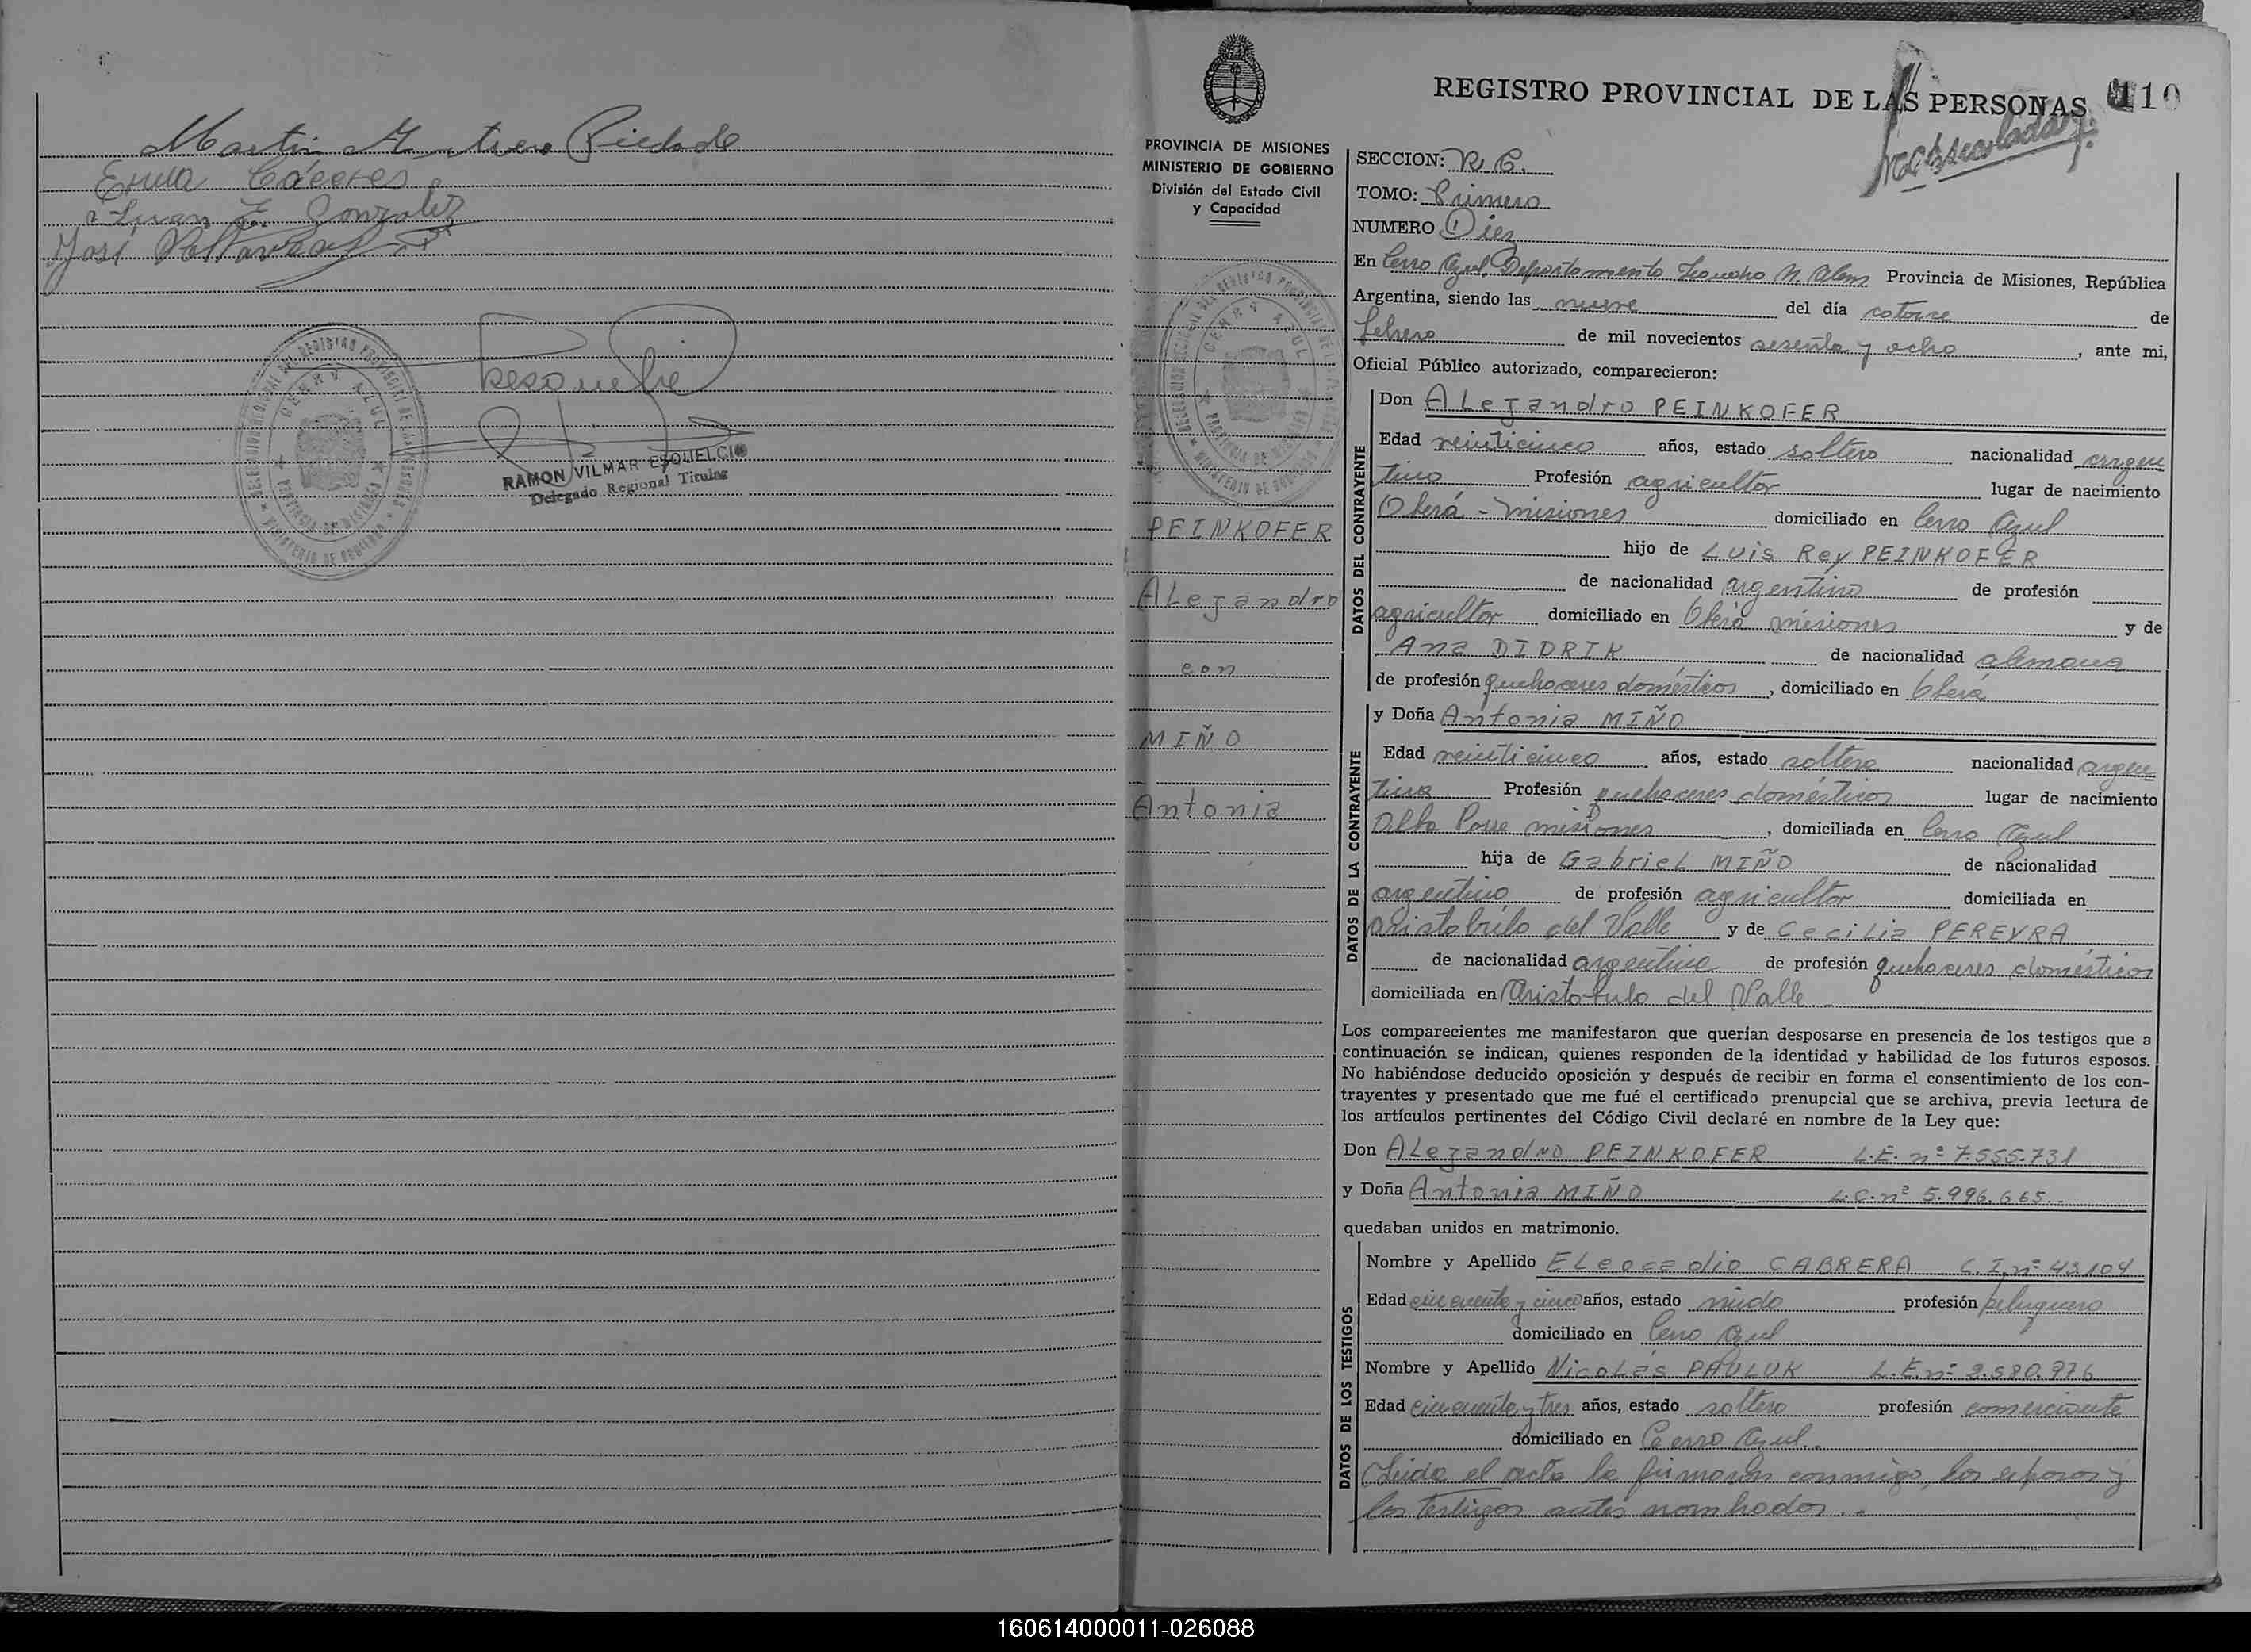 Piedade
Erma Cáceres
Juan F. Gonzalez
José
CERRO AZUL
RAMON VILMAR ESQUELCIO
Delegado Regional Titular
REGISTRO PROVINCIAL DE LAS PERSONAS 110
PROVINCIA DE MISIONES
MINISTERIO DE GOBIERNO
División del Estado Civil
y Capacidad
CERRO AZUL
PEINKOFER
Alejandro
con
MIÑO
Antonia
SECCION: R. C.
TOMO: Primero
NUMERO Diez
En Cerro Azul, Departamento Leandro N. Alem Provincia de Misiones, República
Argentina, siendo las nueve del día catorce de
febrero de mil novecientos sesenta y ocho, ante mi,
Oficial Público autorizado, comparecieron:
DATOS DEL CONTRAYENTE
Don Alejandro PEINKOFER
Edad veinticinco años, estado soltero nacionalidad argen
tino Profesión agricultor lugar de nacimiento
Oberá - Misiones domiciliado en Cerro Azul
hijo de Luis Rey PEINKOFER
de nacionalidad argentino de profesión
agricultor domiciliado en Oberá misiones y de
Ana DIDRIK de nacionalidad alemana
de profesión quehaceres domésticos, domiciliado en Oberá
DATOS DE LA CONTRAYENTE
y Doña Antonia MIÑO
Edad veinticinco años, estado soltera nacionalidad argen
tina Profesión quehaceres domésticos lugar de nacimiento
Alba Posse misiones, domiciliada en Cerro Azul
hija de Gabriel MIÑO de nacionalidad
argentino de profesión agricultor domiciliada en
Aristóbulo del Valle y de Cecilia PEREYRA
de nacionalidad argentina de profesión quehaceres domésticos
domiciliada en Aristóbulo del Valle
Los comparecientes me manifestaron que querían desposarse en presencia de los testigos que a
continuación se indican, quienes responden de la identidad y habilidad de los futuros esposos.
No habiéndose deducido oposición y después de recibir en forma el consentimiento de los con-
trayentes y presentado que me fué el certificado prenupcial que se archiva, previa lectura de
los artículos pertinentes del Código Civil declaré en nombre de la Ley que:
Don Alejandro PEINKOFER L.E. nº 7.555.731
y Doña Antonia MIÑO L.C. nº 5.996.665
quedaban unidos en matrimonio.
DATOS DE LOS TESTIGOS
Nombre y Apellido Eleocadio CABRERA C.I. nº 43104
Edad cincuenta y cinco años, estado viudo profesión peluquero
domiciliado en Cerro Azul
Nombre y Apellido Nicolás PAULUK L.E. nº 2.580.976
Edad cincuenta y tres años, estado soltero profesión comerciante
domiciliado en Cerro Azul.
Leída el acta la firmaron conmigo, los esposos y
los testigos antes nombrados.
160614000011-026088